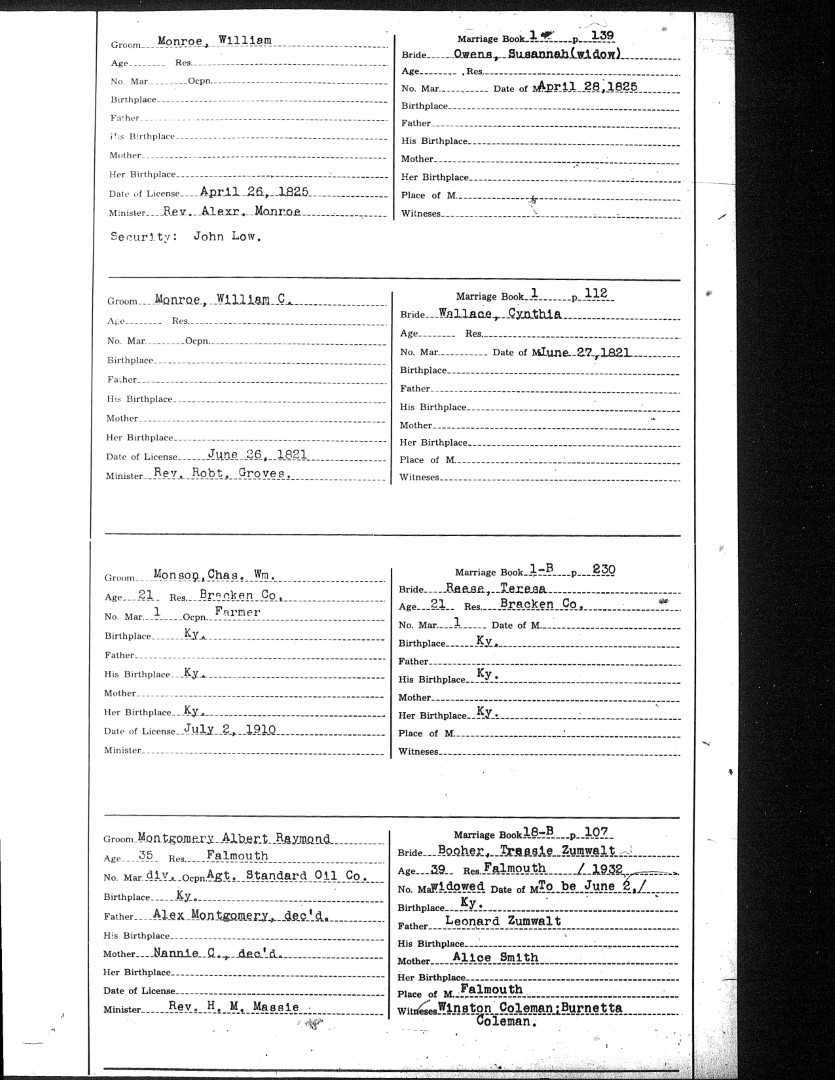 Groom Monroe, William
Age Res.
No. Mar. Ocpn.
Birthplace
Father
His Birthplace
Mother
Her Birthplace
Date of License April 26, 1825
Minister Rev. Alexr. Monroe
Security: John Low.
Marriage Book 1 p. 139
Bride Owens, Susannah(widow)
Age , Res.
No. Mar. Date of M April 28,1825
Birthplace
Father
His Birthplace
Mother
Her Birthplace
Place of M.
Witneses
Groom Monroe, William C.
Age Res.
No. Mar. Ocpn.
Birthplace
Father
His Birthplace
Mother
Her Birthplace
Date of License June 26, 1821
Minister Rev. Robt. Groves.
Marriage Book 1 p. 112
Bride Wallace, Cynthia
Age Res.
No. Mar. Date of M June 27,1821
Birthplace
Father
His Birthplace
Mother
Her Birthplace
Place of M.
Witneses
Groom Monson,Chas. Wm.
Age 21 Res. Bracken Co.
No. Mar 1 Ocpn. Farmer
Birthplace Ky.
Father
His Birthplace Ky.
Mother
Her Birthplace Ky.
Date of License July 2, 1910
Minister
Marriage Book 1-B p. 230
Bride Reese, Teresa
Age 21 Res. Bracken Co.
No. Mar. 1 Date of M.
Birthplace Ky.
Father
His Birthplace Ky.
Mother
Her Birthplace Ky.
Place of M.
Witneses
Groom Montgomery Albert Raymond
Age 35 Res. Falmouth
No. Mar div. Ocpn Agt. Standard Oil Co.
Birthplace Ky.
Father Alex Montgomery, dec'd.
His Birthplace
Mother Nannie C., dec'd.
Her Birthplace
Date of License
Minister Rev. H. M. Massie
Marriage Book 18-B p. 107
Bride Booher, Treasie Zumwalt
Age 39 Res Falmouth / 1932
No. Ma widowed Date of M To be June 2,/
Birthplace Ky.
Father Leonard Zumwalt
His Birthplace
Mother Alice Smith
Her Birthplace
Place of M. Falmouth
Witneses Winston Coleman;Burnetta
Coleman.